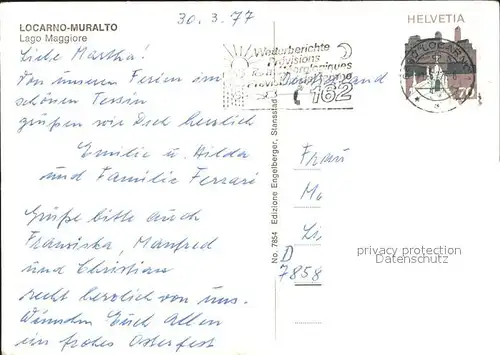 30.3.77
LOCARNO-MURALTO
Lago Maggiore
HELVETIA
LOCARNO
Wetterberichte
Prévisions
météorologiques
162
Liebe Martha!
Von unseren Ferien im
schönen Tessin
grüßen wir Dich herzlich
Emilie u. Hilda
und Familie Ferrari
Grüße bitte auch
Franziska, Manfred
und Christian
recht herzlich von uns.
Wünschen Euch Allen
ein frohes Osterfest
No. 7854 Edizione Engelberger, Stansstad
Deutschland
Frau
Ma
Li
D
7858
privacy protection
Datenschutz